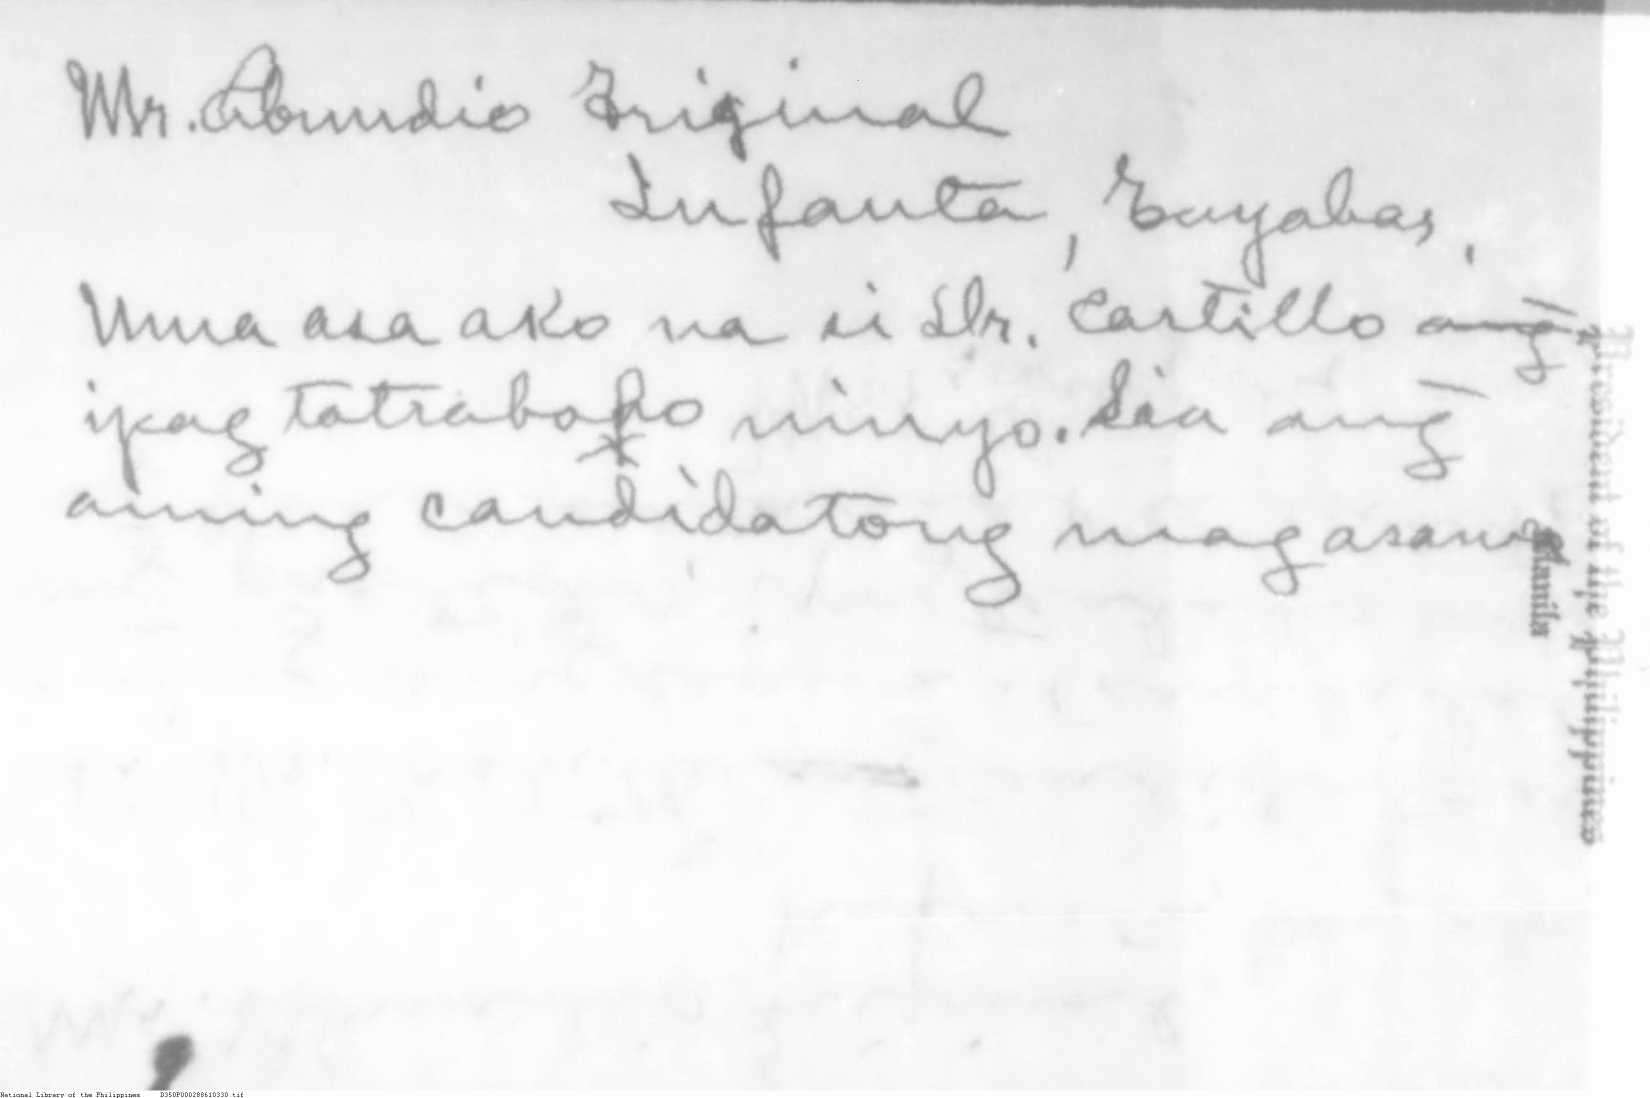 Mr. Abundio Friginal
Infanta, Tayabas.
Uma asa ako na si Dr. Castillo ang
ipag tatrabaho ninyo. Sia ang
aming candidatong magasawa
President of the Philippines
Manila
National Library of the Philippines D350P000288610330.tif